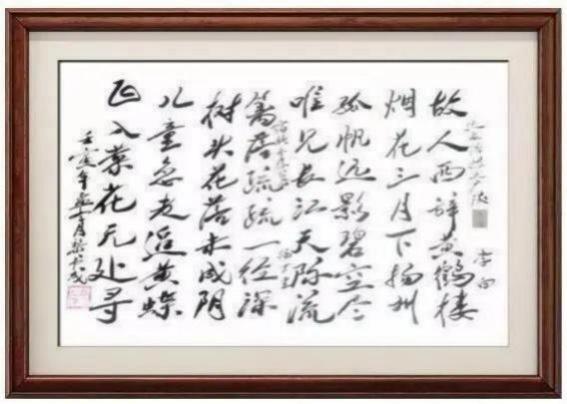 李白
故人西辞黄鹤楼
烟花三月下扬州
孤帆远影碧空尽
唯见长江天际流
篱落疏疏一径深
树头花落未成阴
儿童急走追黄蝶
飞入菜花无处寻
壬寅年